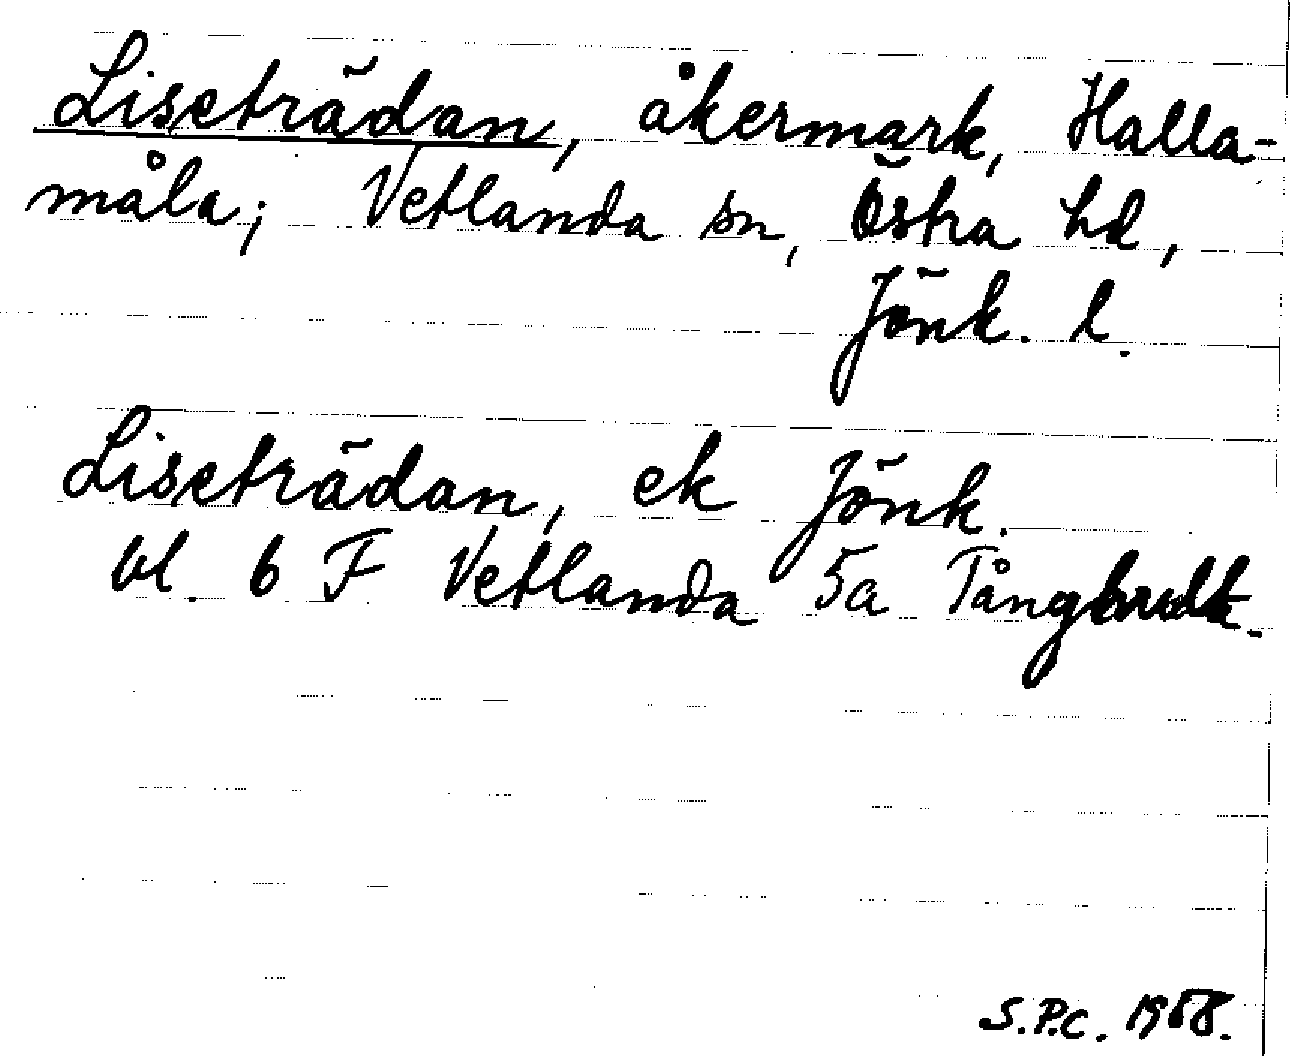 Liseträdan, åkermark, Halla-
måla; Vetlanda sn, Östra hd,
Jönk. l.
Liseträdan, ek Jönk.
bl. 6 F Vetlanda 5a
S.P.C. 1958.